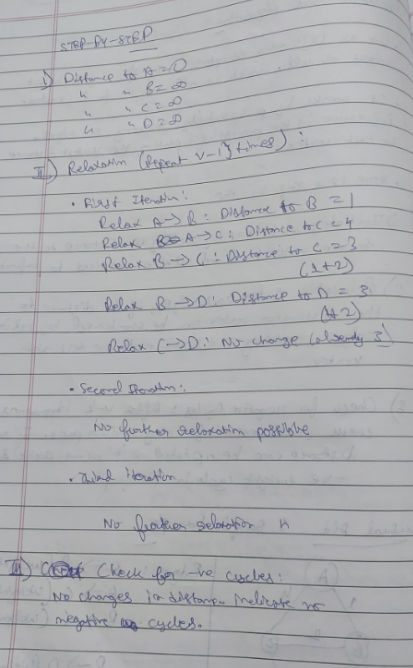 STEP-BY-STEP
I) Distance to A = 0
" " B = ∞
" " C = ∞
" " D = ∞
II) Relaxation (Repeat V-1 times) :
• First Iteration:
Relax A → B : Distance to B = 1
Relax A → C : Distance to C = 4
Relax B → C : Distance to C = 3
(1+2)
Relax B → D : Distance to D = 3
(1+2)
Relax C → D : No change (already 3)
• Second Iteration:
No further relaxation possible
• Third iteration
No further relaxation "
III) Check for -ve cycles:
No changes in distance indicate no
negative cycles.